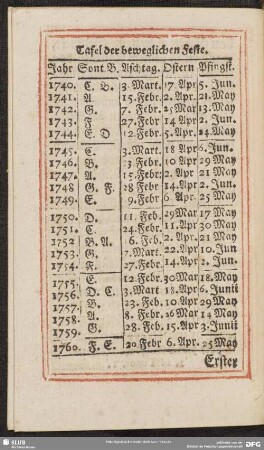 Tafel der beweglichen Feste.
Jahr Sont.B. Aschtag. Ostern Pfingst.
1740. C. B. 3. Mart. 17 Apr 5. Jun.
1741. A. 15. Febr. 2. Apr. 21. May
1742. G. 7. Febr. 25 Mart 13. May
1743. F. 27. Febr 14 Apr 2. Jun.
1744. E. D 12. Febr 5. Apr. 24. May
1745. C. 3. Mart. 18 Apr 6. Jun.
1746. B. 23. Febr 10 Apr 29 May
1747. A. 15. Febr 2. Apr. 21 May
1748 G. F. 28 Febr 14. Apr 2. Jun.
1749. E. 9. Febr 6. Apr 25 May
1750. D. 11. Feb. 29 Mar 17 May
1751. C. 24. Febr. 11. Apr 30 May
1752 B. A. 16. Feb. 2. Apr. 21 May
1753. G. 7. Mart. 22. Apr 10. Jun
1754. F. 27. Febr. 14. Apr 2. Jun.
1755. E. 12. Febr. 30 Mar 18. May
1756. D. C. 3. Mart 18. Apr 6. Junii
1757. B. 23. Feb. 10 Apr 29 May
1758. A. 8. Feb. 26 Mar 14 May
1759. G. 28. Feb. 15. Apr 3. Junii
1760. F. E. 20 Febr 6. Apr. 25 May
Erster
SLUB
DFG